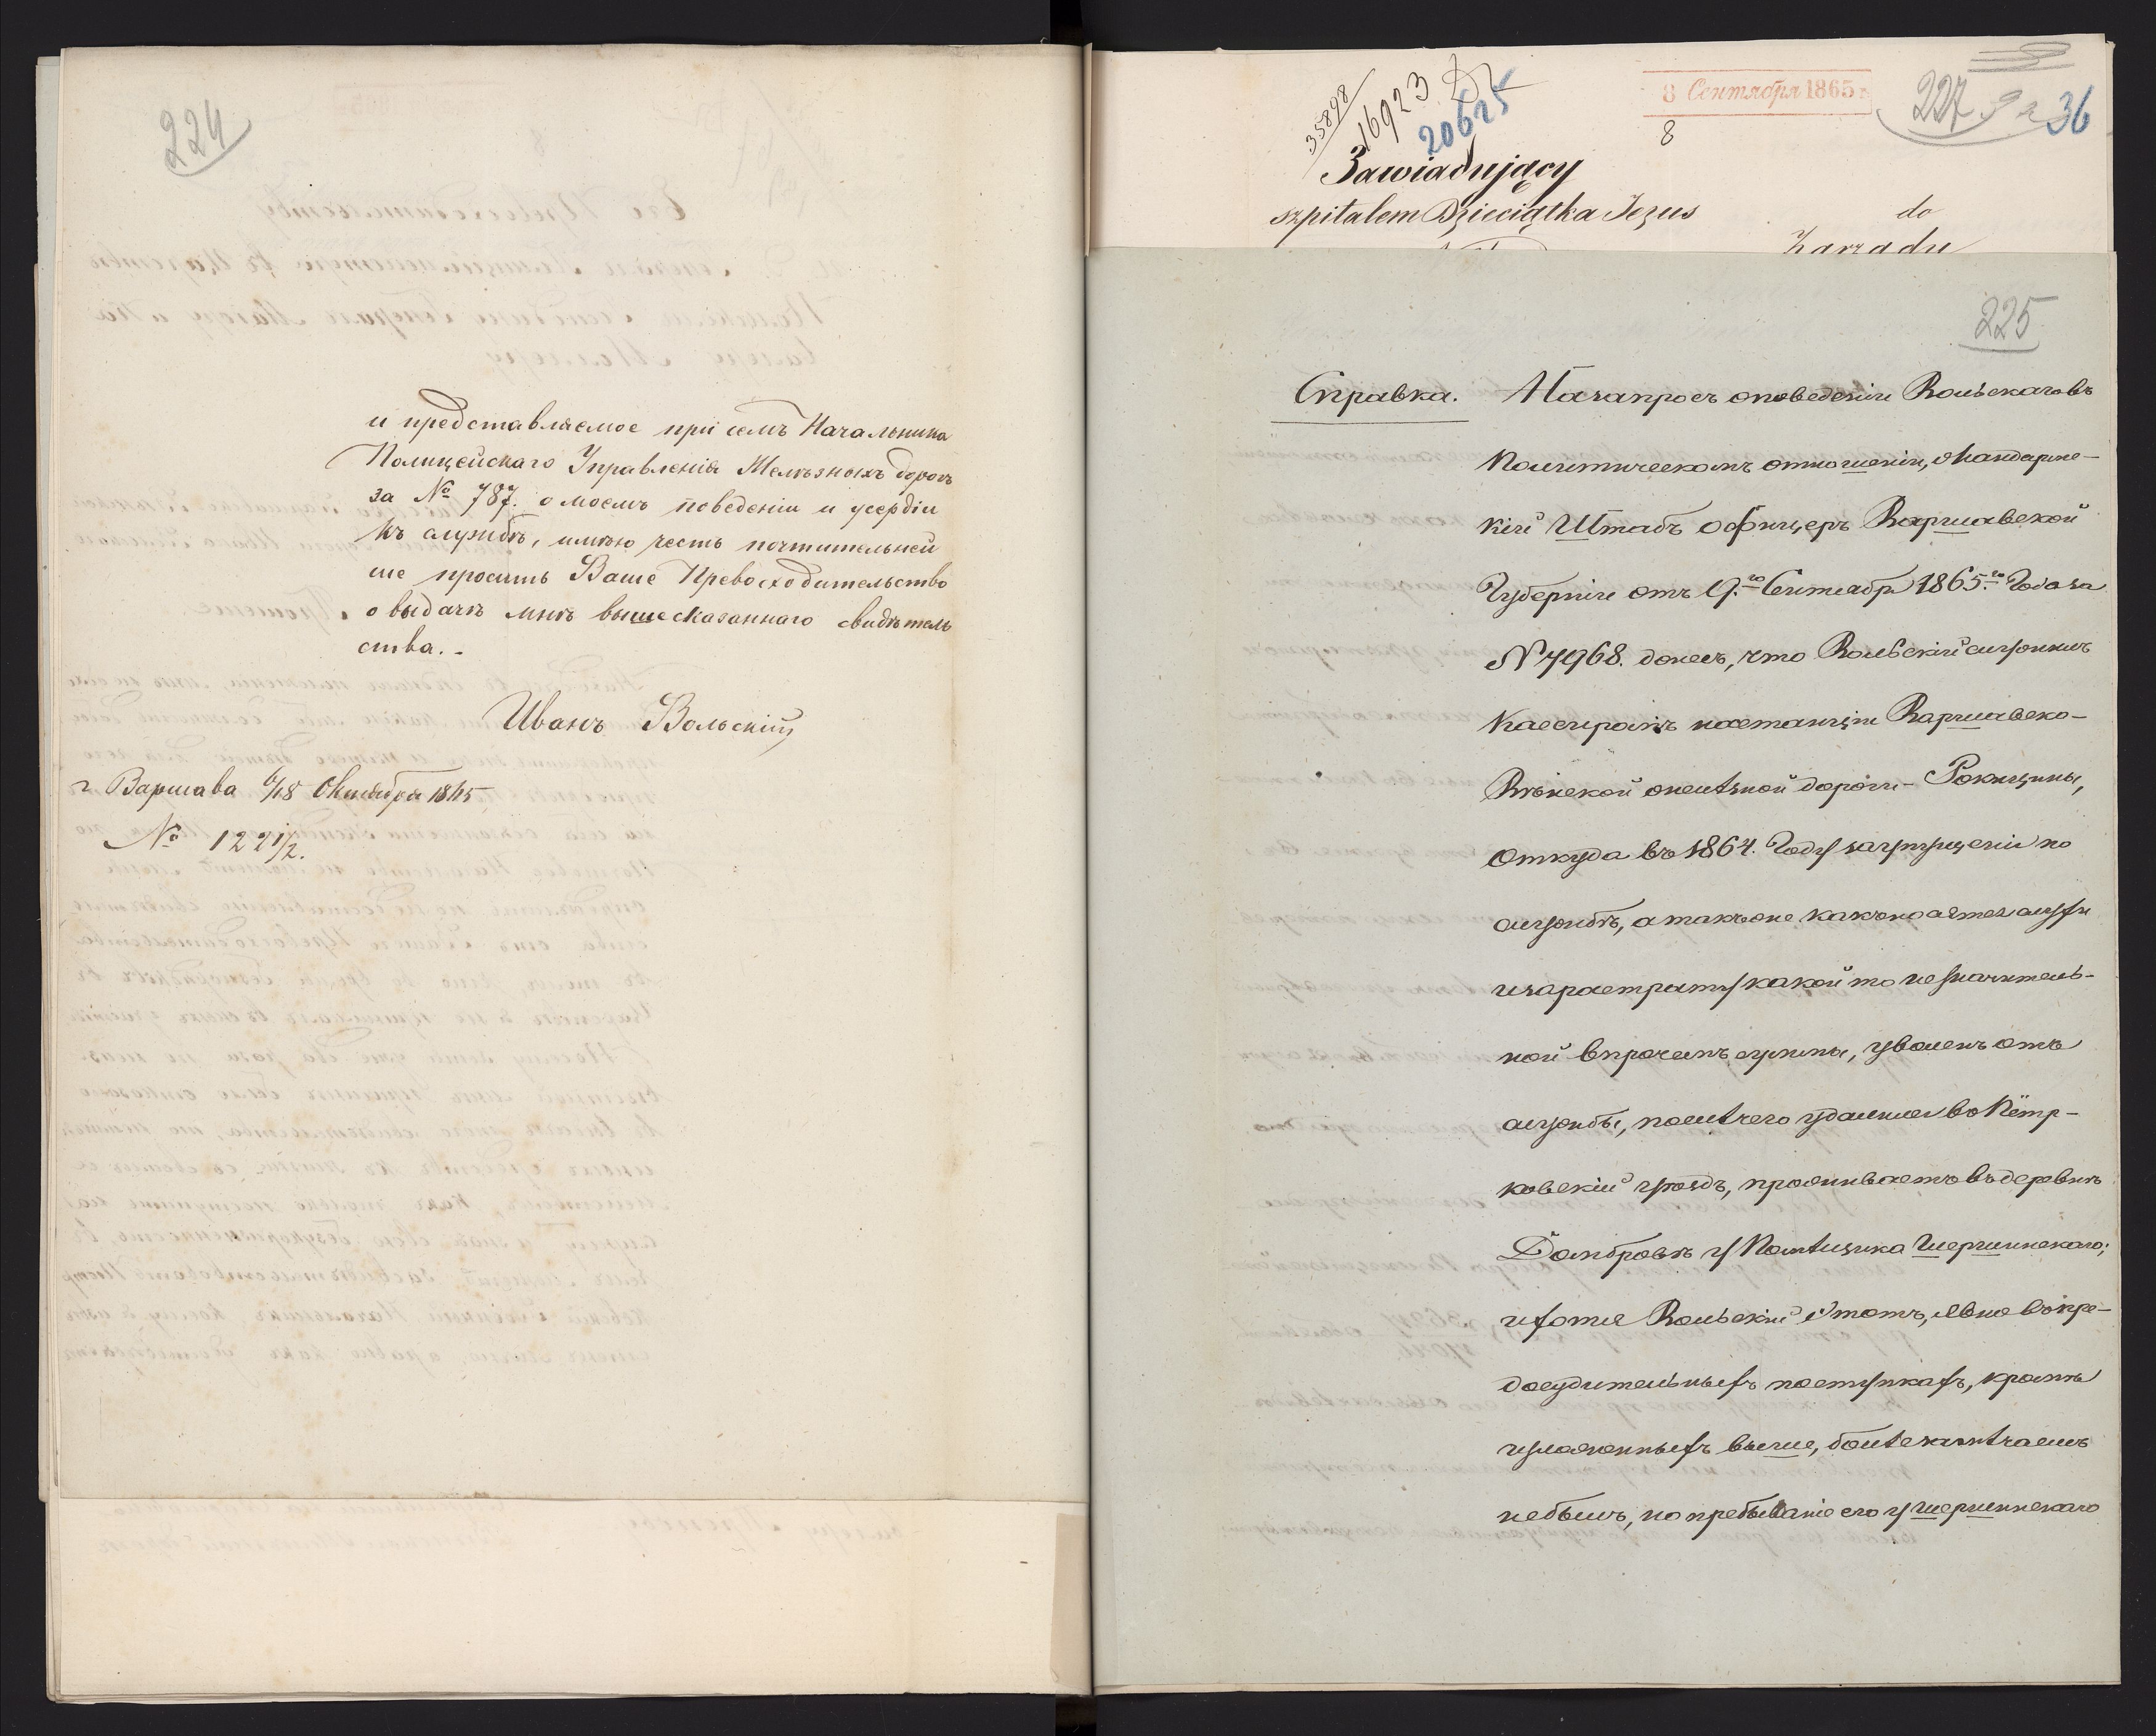 224
и представляемое при семъ Начальника
Полицейскаго Управленія Желѣзныхъ дорогъ
за № 787. о моемъ поведеніи и усердіи
къ службѣ, имѣю честь почтительнѣй
ше просить Ваше Превосходительство
о выдачѣ мнѣ вышесказаннаго свидѣтель
ства.-
Иванъ Вольскій
г Варшава 6/18 Октября 1865
№ 1221/2.
35898
16923
20625
8 Сентября 1865 г.
8
227
36
Zawiadujący
szpitalem Dzieciątka Jezus
do
Zarządu
225
Справка. На запросъ о поведеніи Вольскаго въ
Политическомъ отношеніи, Жандармс-
кій Штабъ офицеръ Варшавской
Губерніи отъ 9.го Сентября 1865.го Года за
N 7968. донесъ, что Вольскій служилъ
Кассиромъ на станціи Варшавско-
Вѣнской желѣзной дороги - Рокицины,
откуда въ 1864. Году за упущеніи по
службѣ, а также какъ носятся слухи
и за растрату какой то незначитель-
ной впрочемъ суммы, уволенъ отъ
службы, послѣ чего удалился въ Пётр-
ковскій уѣздъ, проживаетъ въ деревнѣ
Домбровѣ у Помѣщика Шершинскаго;
и хотя Вольскій этотъ, явно въ пре-
досудительныхъ поступкахъ, кромѣ
изложенныхъ выше, болѣе замѣчаемъ
небылъ, но пребываніе его у Шершинскаго